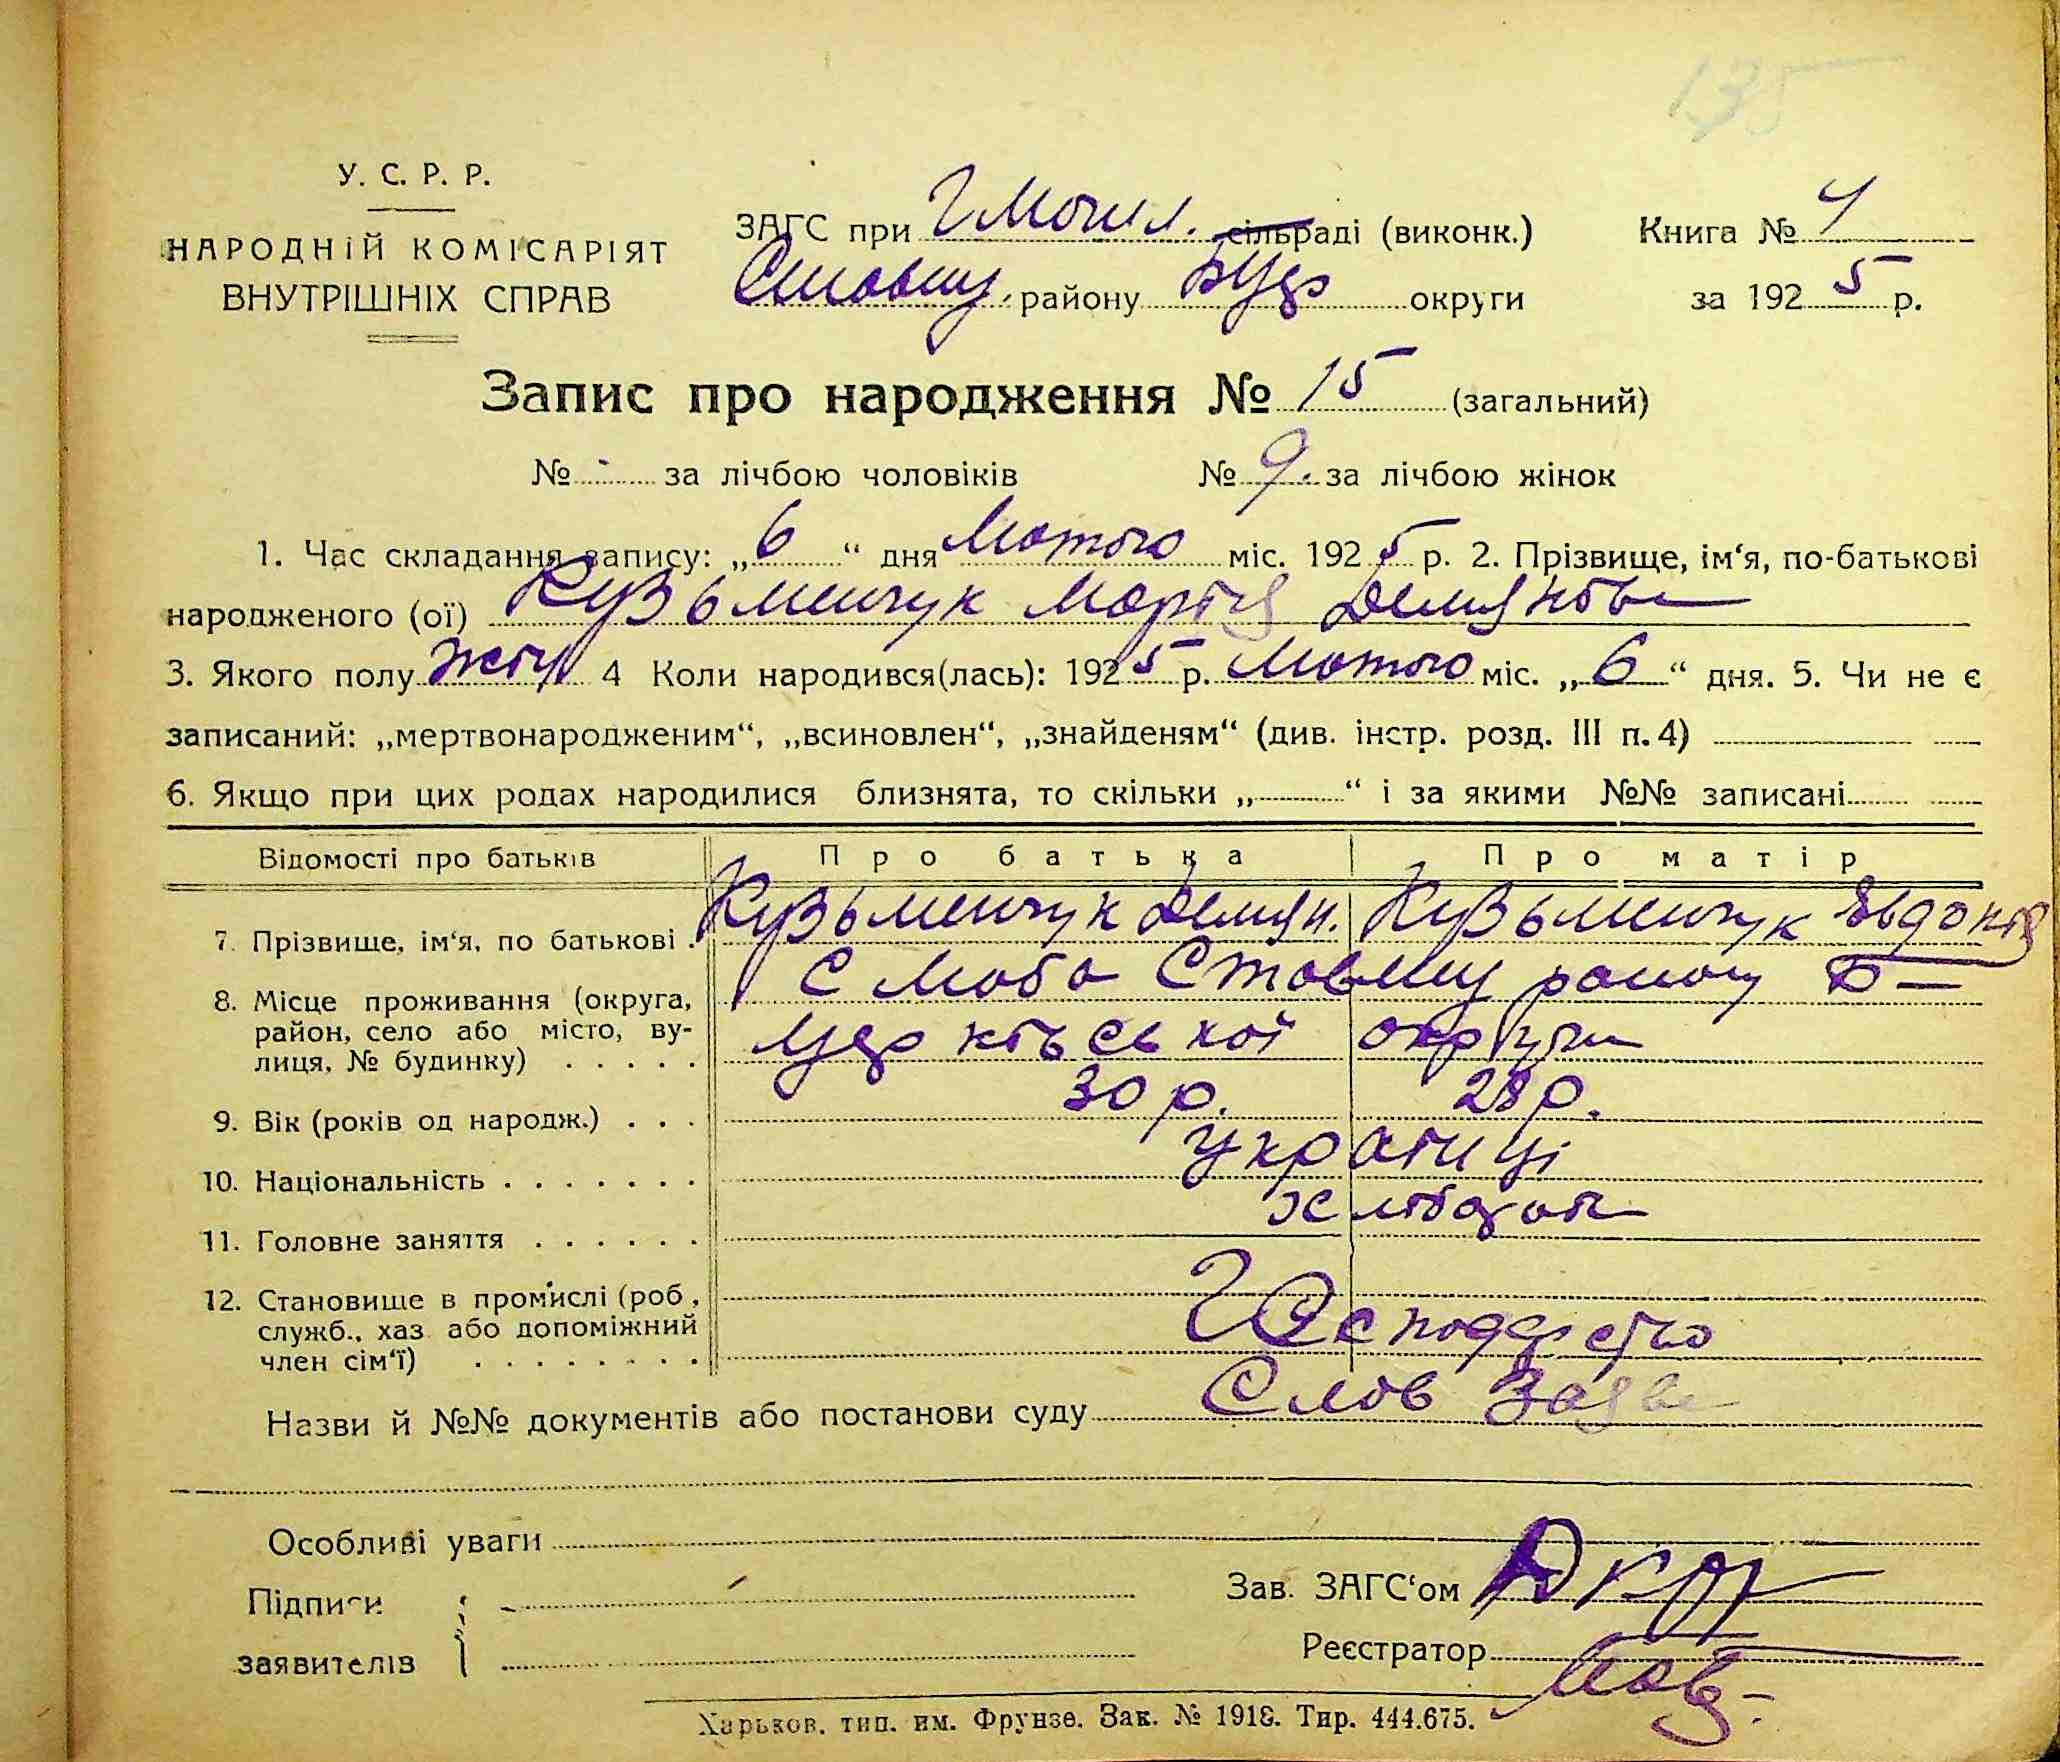 135
У. С. Р. Р.
НАРОДНІЙ КОМІСАРІЯТ
ВНУТРІШНІХ СПРАВ
ЗАГС при Гмогил. сільраді (виконк.)
Ставищ. району Буцр округи
Книга №
за 1925 р.
Запис про народження № 15 (загальний)
№ - за лічбою чоловіків № 9. за лічбою жінок
1. Час складання запису: „6“ дня Лютого міс. 1925 р. 2. Прізвище, ім‘я, по-батькові
народженого (ої) Кузьменчук Марія Демянівн
3. Якого полу жін 4 Коли народився(лась): 1925 р. Лютого міс. „6“ дня. 5. Чи не є
записаний: „мертвонародженим“, „всиновлен“, „знайденям“ (див. інстр. розд. III п. 4)
6. Якщо при цих родах народилися близнята, то скільки „ “ і за якими №№ записані
Відомості про батьків Про батька Про матір
7. Прізвище, ім‘я, по батькові . Кузьменчук Демян. Кузьменчук Явдокія
8. Місце проживання (округа, район, село або місто, вулиця, № будинку) . . . . . С Люба Ставищ району Б—
округи
9. Вік (років од народж.) . . . 30 р. 28 р.
10. Національність . . . . . . . Українці
11. Головне заняття . . . . . . Хлібороби
12. Становище в промислі (роб., служб., хаз. або допоміжний член сім‘ї) . . . . . . . .
Назви й №№ документів або постанови суду Слов Заяви
Особливі уваги
Підписи
заявителів
Зав. ЗАГС‘ом
Реєстратор
Харьков. тип. им. Фрунзе. Зак. № 1918. Тир. 444.675.